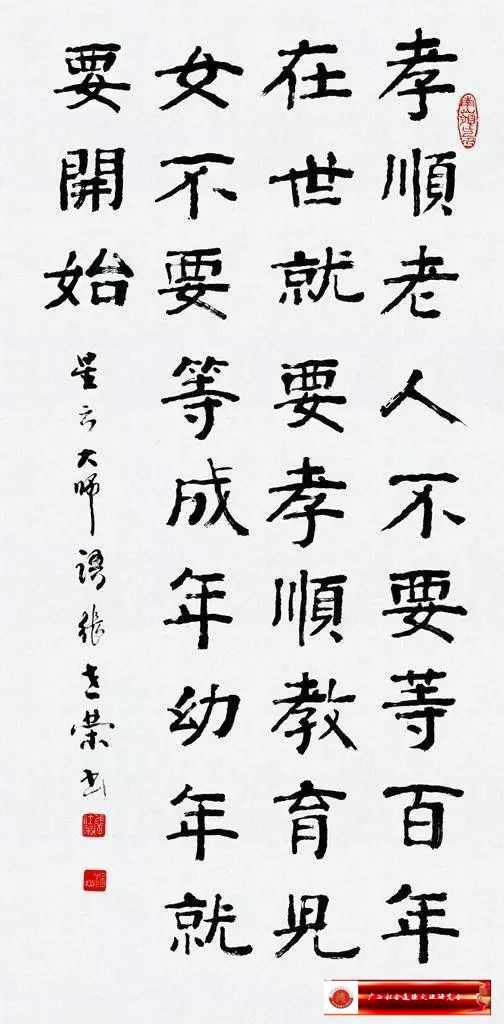 孝順老人不要等百年
在世就要孝順教育兒
女不要等成年幼年就
要開始
星云大師語張志榮书
广西社会道德文化研究会